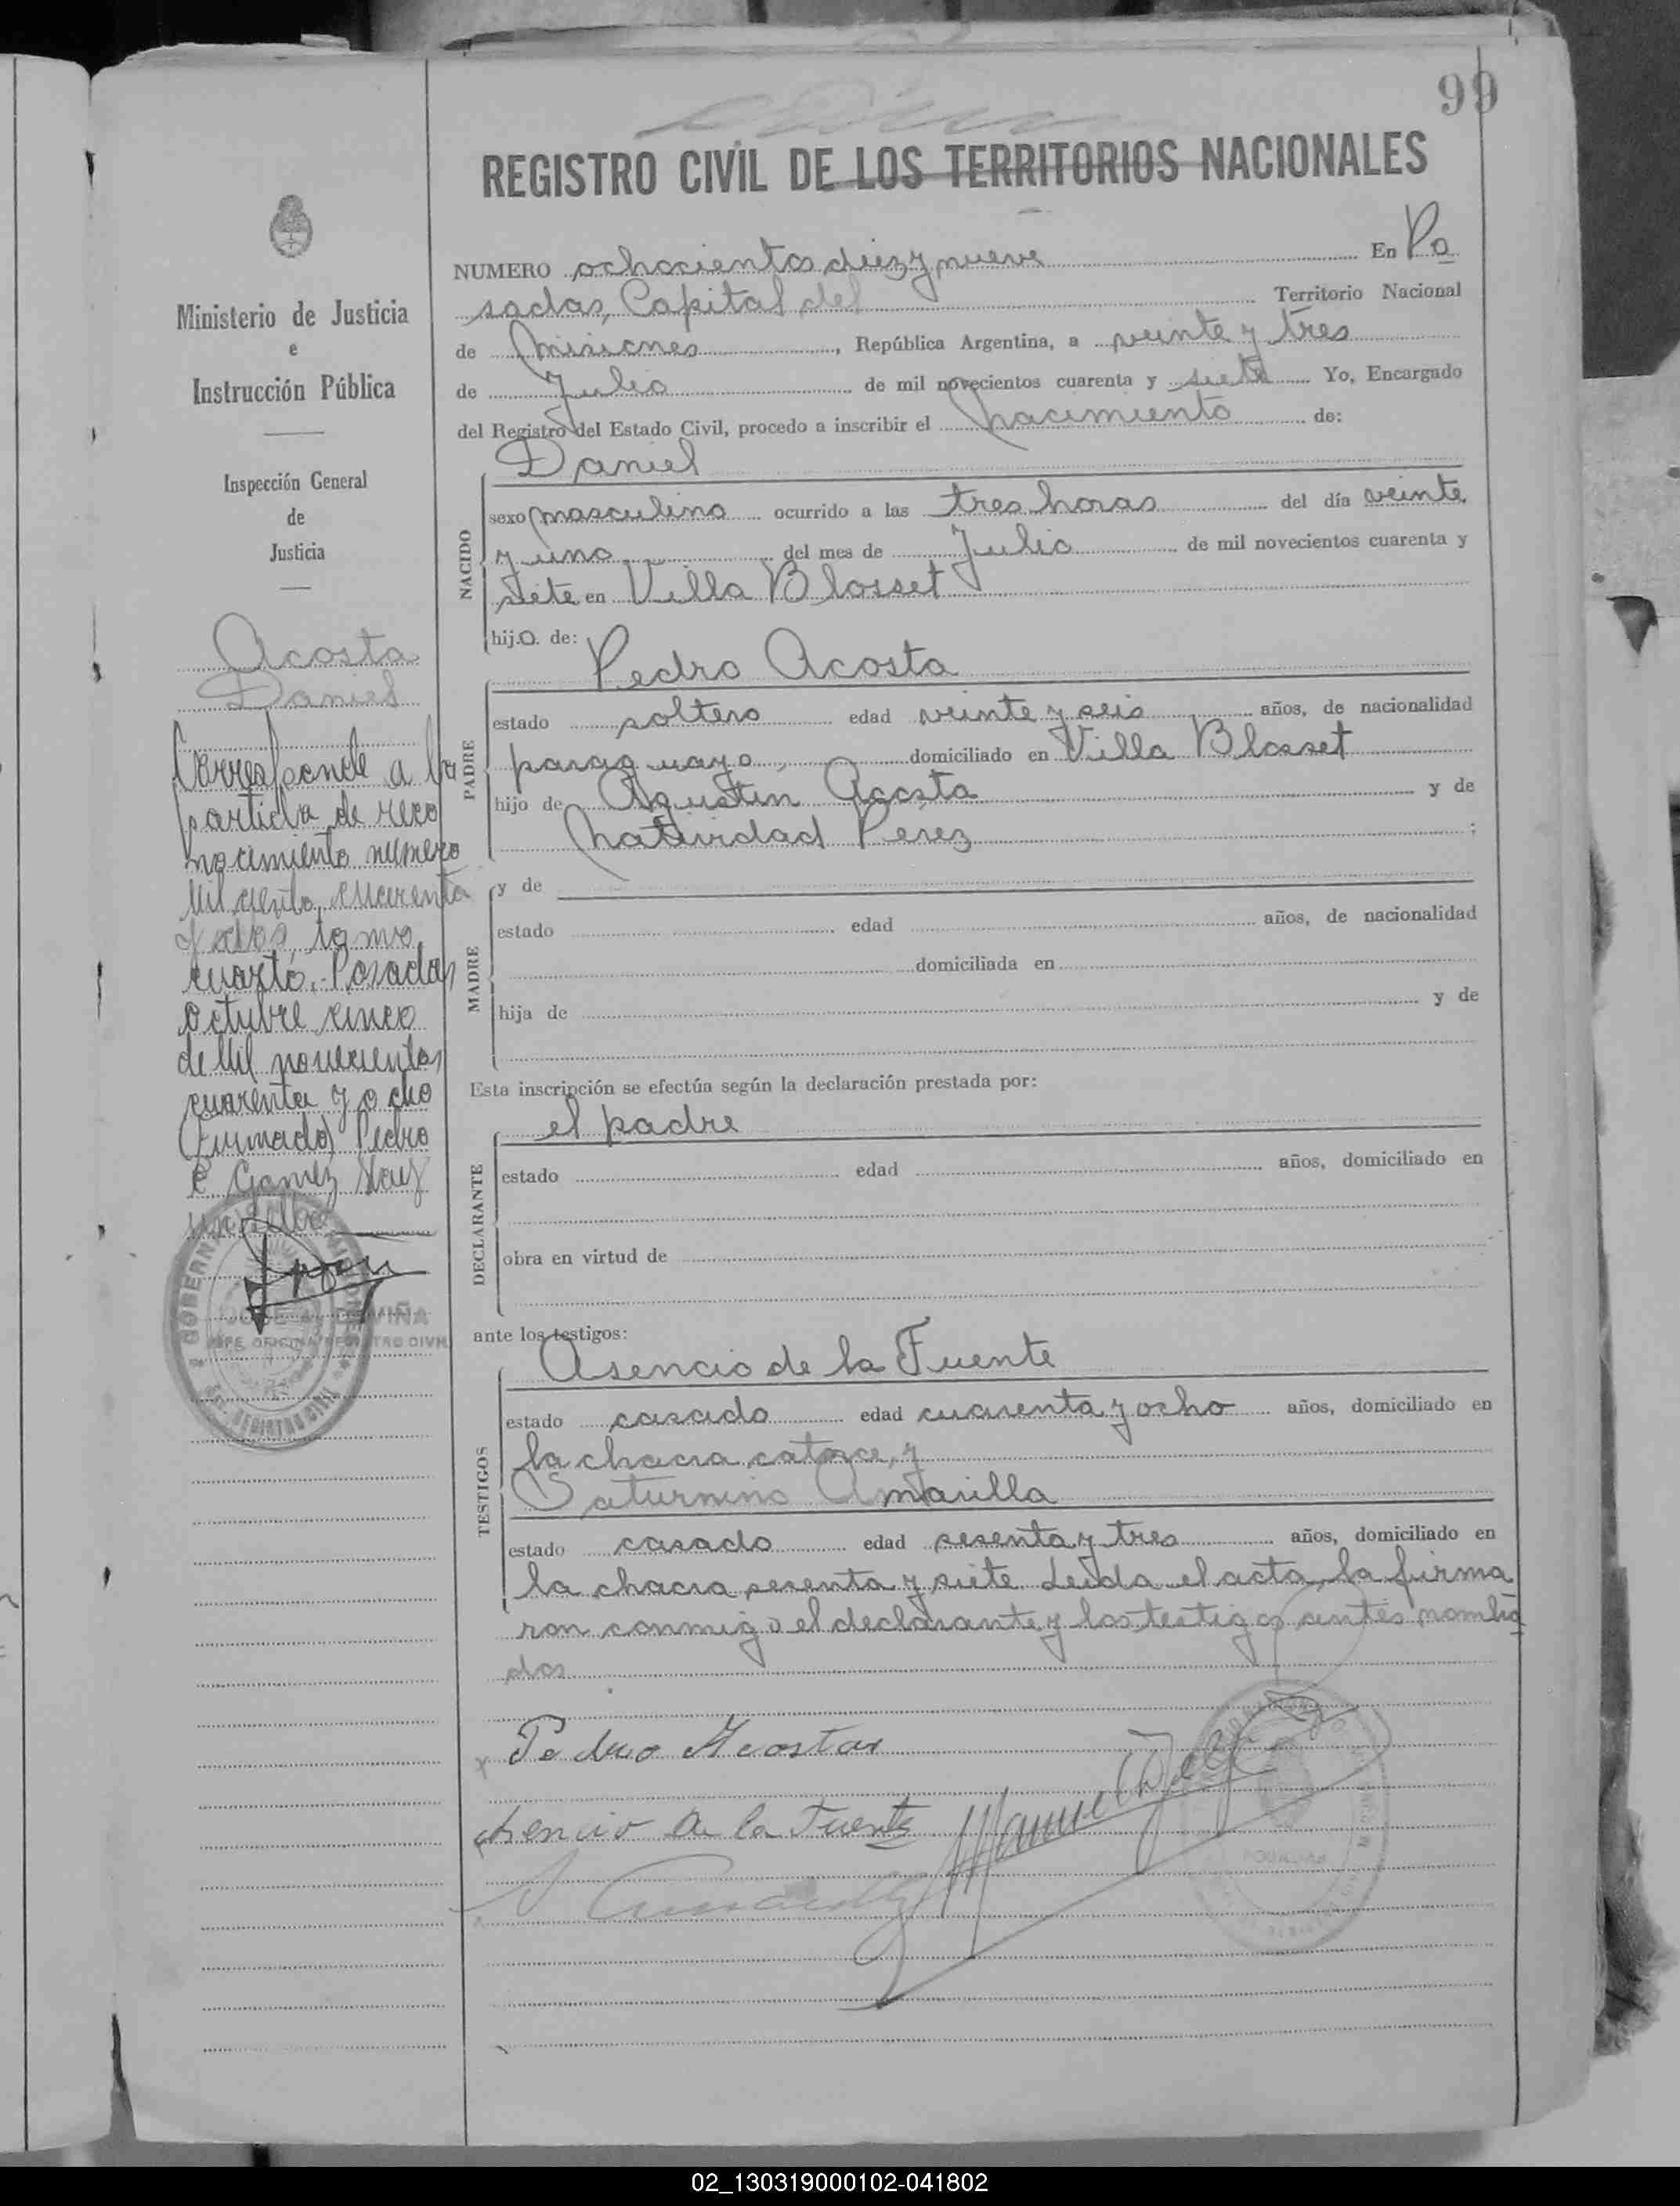 99
REGISTRO CIVIL DE LOS TERRITORIOS NACIONALES
NUMERO ochocientos diez y nueve En Po
sadas, Capital del Territorio Nacional
de Misiones, República Argentina, a veinte y tres
de Julio de mil novecientos cuarenta y siete Yo, Encargado
del Registro del Estado Civil, procedo a inscribir el Nacimiento de:
Daniel
NACIDO
sexo masculino ocurrido a las tres horas del día veinte
y uno del mes de Julio de mil novecientos cuarenta y
siete en Villa Blosset
hijo. de:
Pedro Acosta
PADRE
estado soltero edad veinte y seis años, de nacionalidad
paraguayo, domiciliado en Villa Blosset
hijo de Agustin Acosta y de
Natividad Perez ;
MADRE
y de
estado edad años, de nacionalidad
domiciliada en
hija de y de
Esta inscripción se efectúa según la declaración prestada por:
el padre
DECLARANTE
estado edad años, domiciliado en
obra en virtud de
ante los testigos:
Asencio de la Fuente
TESTIGOS
estado casado edad cuarenta y ocho años, domiciliado en
la chacra catorce, y
Saturnino Amarilla
estado casado edad sesenta y tres años, domiciliado en
la chacra sesenta y siete. Leida el acta, la firma
ron conmigo el declarante y los testigos antes nombra
dos
Pedro Acosta
Asencio De la Fuente
Ministerio de Justicia
e
Instrucción Pública
Inspección General
de
Justicia
Acosta
Daniel
Corresponde a la
partida de reco
nocimiento numero
Mil ciento cuarenta
y dos, tomo
cuarto. Posadas
Octubre cinco
de Mil novecientos
cuarenta y ocho
(Firmado) Pedro
E. Gomez Hay
un sello
JOSE A. DE VIÑA
JEFE OFICINA REGISTRO CIVIL
02_130319000102-041802